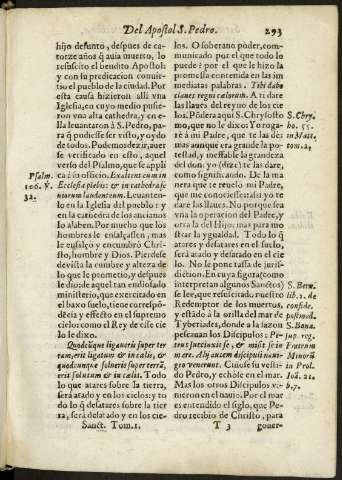 Del Apostol S. Pedro. 293
hijo defunto, despues de ca-
torze años q̃ auia muerto, lo
resuscito el bendito Apostol:
y con su predicacion conuir-
tio el pueblo de la ciudad. Por
esta causa hizieron alli vna
Iglesia, en cuyo medio pusie-
ron vna alta cathedra, y en e-
lla leuantaron à S. Pedro, pa-
ra q̃ pudiesse ser visto, y oydo
de todos. Podemos dezir, auer
se verificado en esto, aquel
verso del Psalmo, que se appli-
ca à su oficio. Exaltent eum in
Ecclesia plebis: & in cathedra se
niorum laudent eum. Leuanten-
lo en la Iglesia del pueblo: y
en la cathedra de los ancianos
lo alaben. Por mucho que los
hombres le ensalçassen, mas
le ensalçò y encumbrò Chri-
sto, hombre y Dios. Pierdese
de vista la cumbre y alteza de
lo que le prometio, y despues
le dio: de aquel tan endiosado
ministerio, que exercitado en
el baxo suelo, tiene correspõ-
dẽcia y effecto en el supremo
cielo: como el Rey de esse cie
lo le dixo.
Quodcũque ligaueris super ter
ram, erit ligatum & in cælis, &
quodcunque solueris super terrã,
erit solutum & in cælis. Todo
lo que atares sobre la tierra,
serà atado y en los cielos: y to
do lo q̃ desatares sobre la tier
ra, serà desatado y en los cie-
Sanct. Tom. 1.
Psalm.
106. V.
32.
los. O soberano poder, com-
municado por el que todo lo
puede? ò por el que le hizo la
promessa contenida en las im
mediatas palabras. Tibi dabo
claues regni cælorum. A ti dare
las llaues del reyno de los cie
los. Põdera aqui S. Chrysosto
mo, que no le dixo: Yo roga-
rè à mi Padre, que te las dè:
mas aunque era grande la po-
testad, y ineffable la grandeza
del don: yo (dize) te las dare,
como significando. De la ma
nera que te reuelo mi Padre,
que me conociesses: assi yo te
dare las llaues. No porque sea
vna la operacion del Padre, y
otra la del Hijo: mas para mo
strar la ygualdad. Todo lo q̃
atares y desatares en el suelo,
serà atado y desatado en el cie
lo. No le pone tassa de juris-
diction. En cuya figura (como
interpretan algunos Sanctos)
se lee, que resuscitado nuestro
Redemptor de los muertos,
y estàdo à la orilla del mar de
Tyberiades, donde à la sazon
pescauan los Discipulos: Pe-
trus succinxit se, & misit se in
mare. Alij autem discipuli naui-
gio venerunt. Ciñose su vesti-
do Pedro, y echòse en el mar.
Mas los otros Discipulos vi-
nieron en el nauio. Por el mar
es entendido el siglo, que Pe-
dro recibio de Christo, para
T 3 gouer-
S. Chry.
ho. 55.
in Matt.
tom. 2.
S. Bern.
lib. 2. de
conside.
S. Bona.
Fratrum
Minorũ
in Prol.
Ioã. 21.
b. 7.